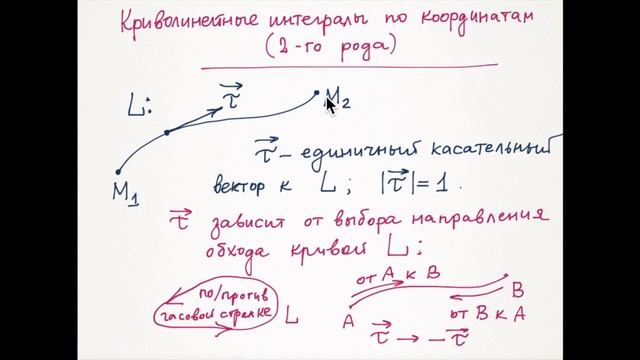 Криволинейные интегралы по координатам
(2-го рода)
L:
τ
M2
M1
τ – единичный касательный
вектор к L; |τ|=1.
τ зависит от выбора направления
обхода кривой L:
по/против
часовой стрелке
L
от A к B
A
B
от B к A
τ → –τ